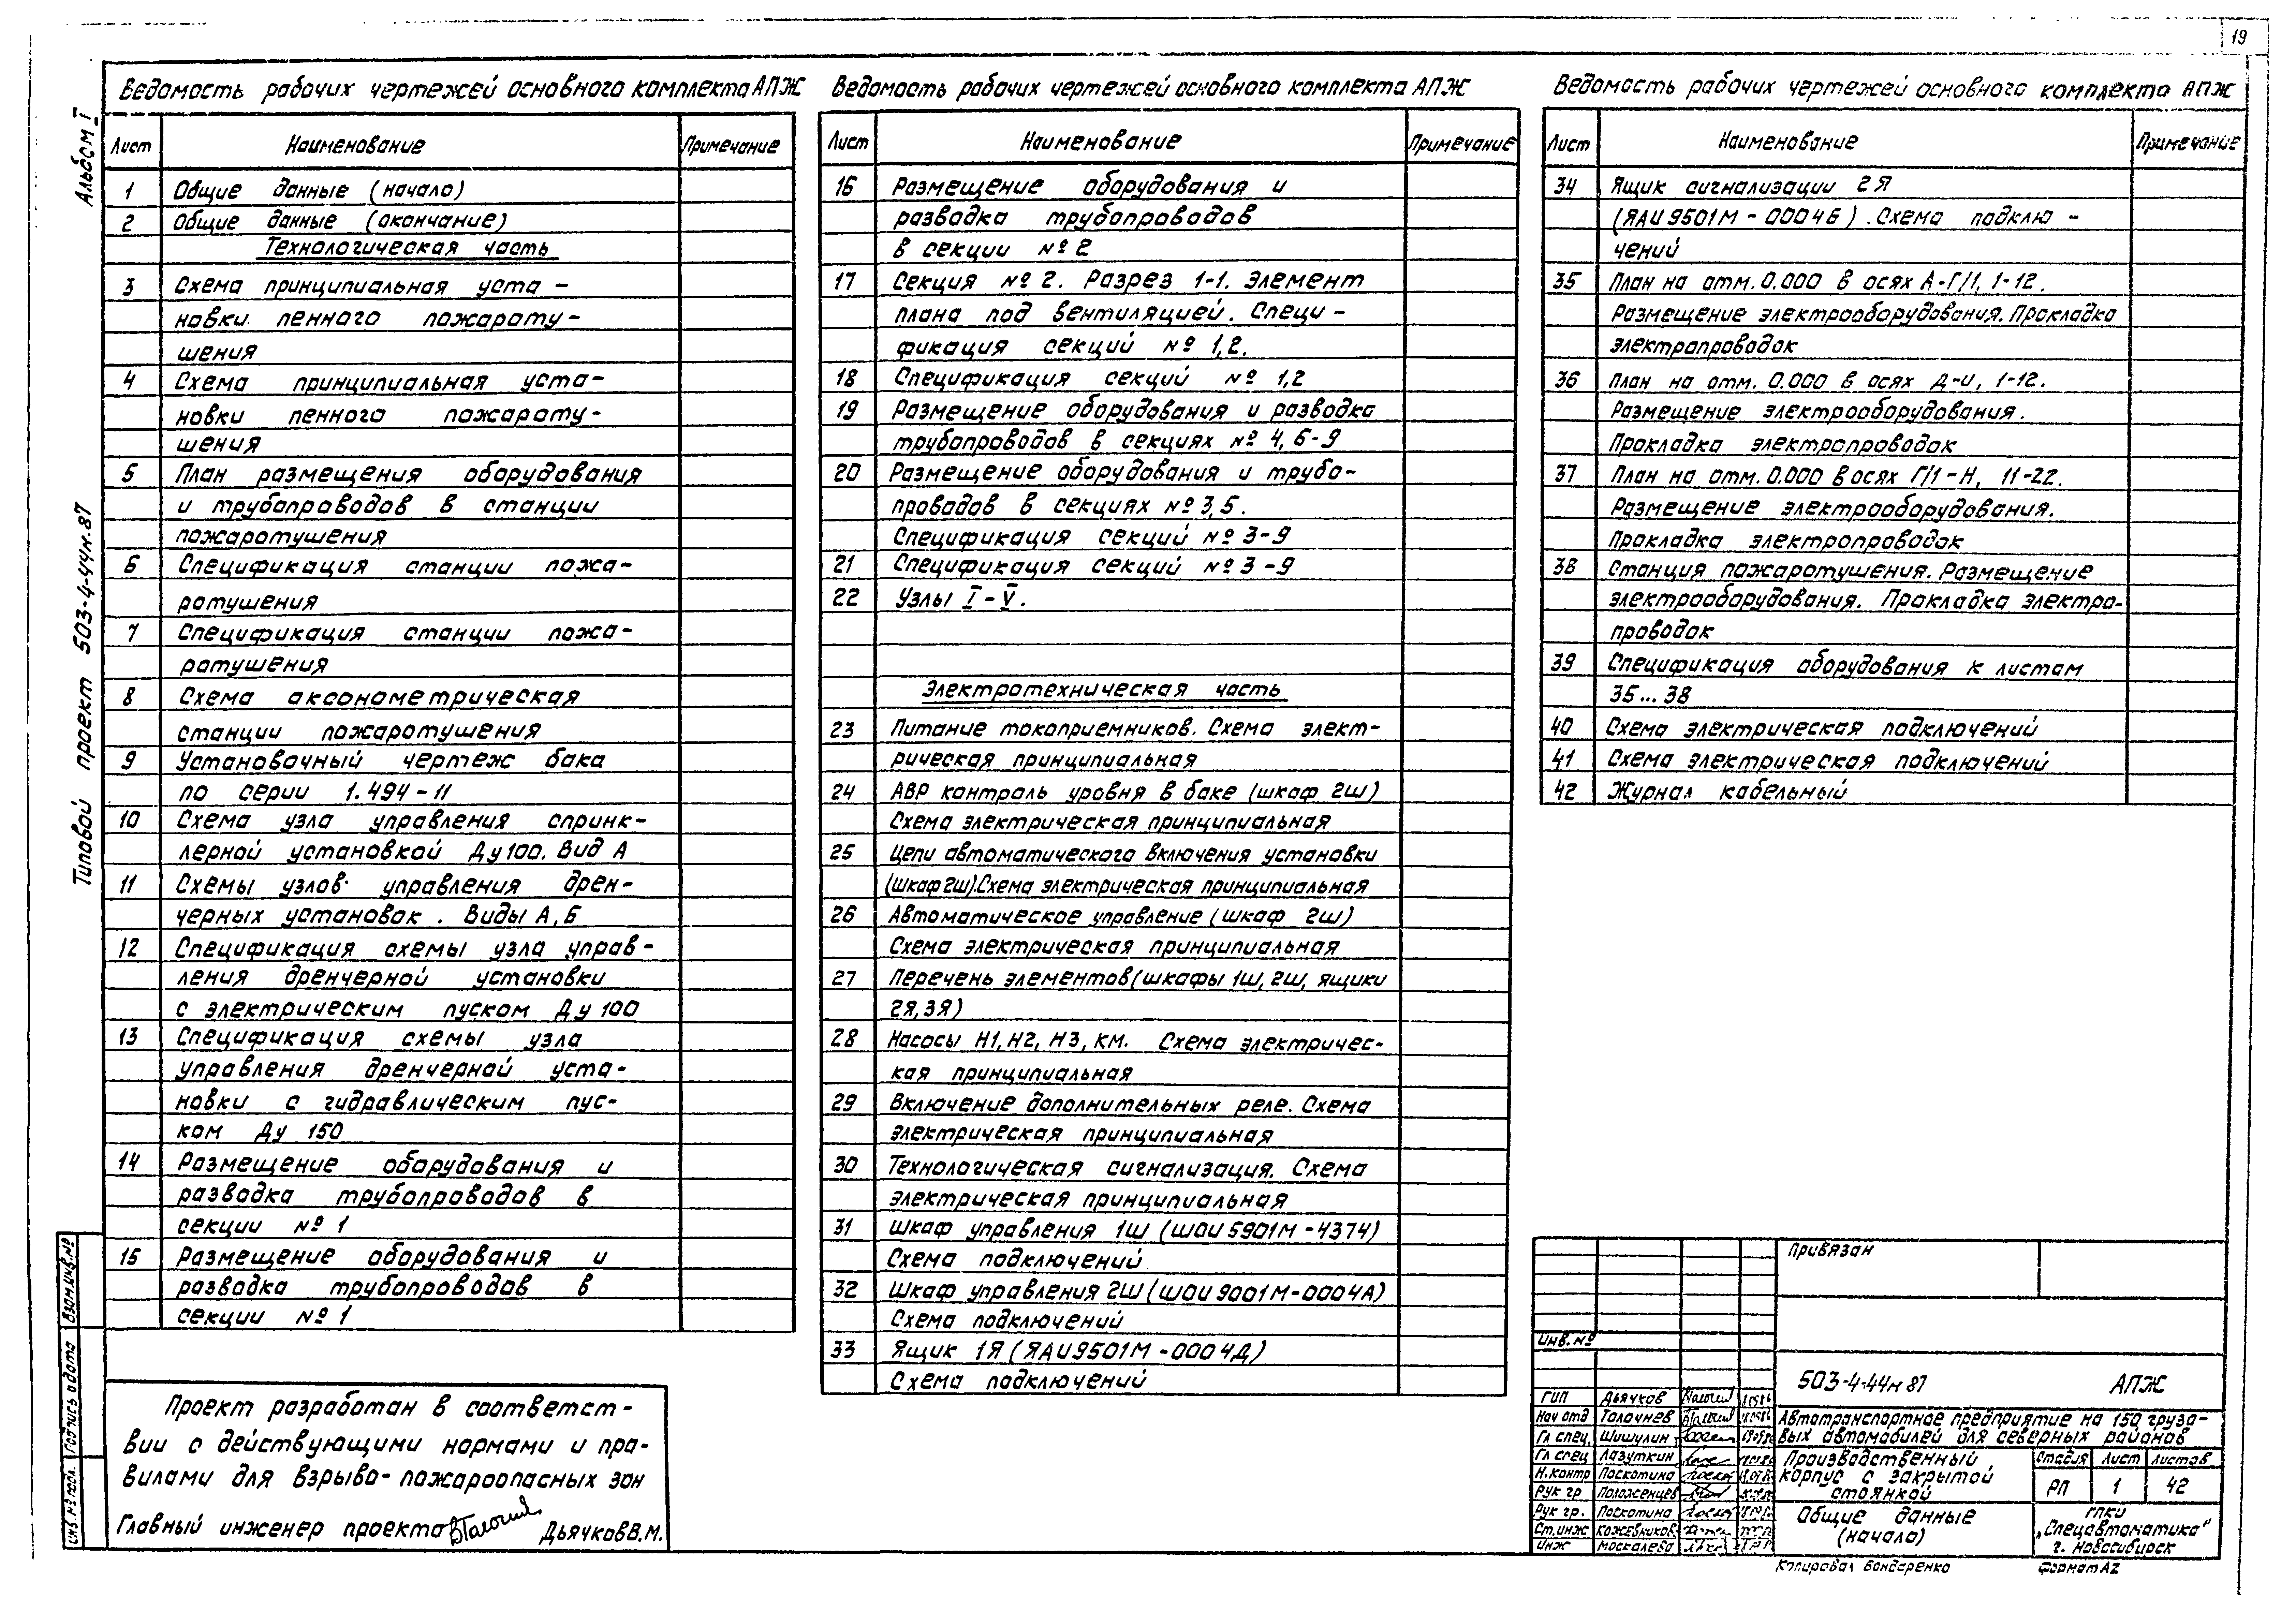 19
Альбом I
Типовой проект 503-4-44м.87
Ведомость рабочих чертежей основного комплекта АПЖ
Лист Наименование Примечание
1 Общие данные (начало)
2 Общие данные (окончание)
Технологическая часть
3 Схема принципиальная уста-
новки пенного пожароту-
шения
4 Схема принципиальная уста-
новки пенного пожароту-
шения
5 План размещения оборудования
и трубопроводов в станции
пожаротушения
6 Спецификация станции пожа-
ротушения
7 Спецификация станции пожа-
ротушения
8 Схема аксонометрическая
станции пожаротушения
9 Установочный чертеж бака
по серии 1.494-11
10 Схема узла управления спринк-
лерной установкой Ду100. Вид А
11 Схемы узлов управления дрен-
черных установок. Виды А, Б
12 Спецификация схемы узла управ-
ления дренчерной установки
с электрическим пуском Ду 100
13 Спецификация схемы узла
управления дренчерной уста-
новки с гидравлическим пус-
ком Ду 150
14 Размещение оборудования и
разводка трубопроводов в
секции №1
15 Размещение оборудования и
разводка трубопроводов в
секции №1
Ведомость рабочих чертежей основного комплекта АПЖ
Лист Наименование Примечание
16 Размещение оборудования и
разводка трубопроводов
в секции №2
17 Секция №2. Разрез 1-1. Элемент
плана под вентиляцией. Специ-
фикация секций № 1,2.
18 Спецификация секций № 1,2
19 Размещение оборудования и разводка
трубопроводов в секциях № 4, 6-9
20 Размещение оборудования и трубо-
проводов в секциях № 3, 5.
Спецификация секций № 3-9
21 Спецификация секций № 3-9
22 Узлы I-V.
Электротехническая часть
23 Питание токоприемников. Схема элект-
рическая принципиальная
24 АВР контроль уровня в баке (шкаф 2Ш)
Схема электрическая принципиальная
25 Цепи автоматического включения установки
(шкаф 2Ш). Схема электрическая принципиальная
26 Автоматическое управление (шкаф 2Ш)
Схема электрическая принципиальная
27 Перечень элементов (шкафы 1Ш, 2Ш, ящики
2Я, 3Я)
28 Насосы Н1, Н2, Н3, КМ. Схема электричес-
кая принципиальная
29 Включение дополнительных реле. Схема
электрическая принципиальная
30 Технологическая сигнализация. Схема
электрическая принципиальная
31 Шкаф управления 1Ш (ШОИ 5901М-4374)
Схема подключений
32 Шкаф управления 2Ш (ШОИ 9001М-0004А)
Схема подключений
33 Ящик 1Я (ЯАИ9501М-0004Д)
Схема подключений
Ведомость рабочих чертежей основного комплекта АПЖ
Лист Наименование Примечание
34 Ящик сигнализации 2Я
(ЯАИ9501М-0004Б). Схема подклю-
чений
35 План на отм. 0.000 в осях А-Г/1, 1-12.
Размещение электрооборудования. Прокладка
электропроводок
36 План на отм. 0.000 в осях Д-И, 1-12.
Размещение электрооборудования.
Прокладка электропроводок
37 План на отм. 0.000 в осях Г/1-Н, 11-22.
Размещение электрооборудования.
Прокладка электропроводок
38 Станция пожаротушения. Размещение
электрооборудования. Прокладка электро-
проводок
39 Спецификация оборудования к листам
35...38
40 Схема электрическая подключений
41 Схема электрическая подключений
42 Журнал кабельный
Взам.инв.№
Подпись и дата
Инв.№ подл.
Проект разработан в соответст-
вии с действующими нормами и пра-
вилами для взрыво-пожароопасных зон
Главный инженер проекта Дьячков В.М.
Привязан
Инв. №
503-4-44м 87 АПЖ
ГИП Дьячков
Нач отд Толочнев
Гл спец. Шишулин
Гл спец Лазуткин
Н.контр Поскотина
Рук гр Положенцев
Рук гр. Поскотина
Ст.инж Кожевников
Инж Москалева
Автотранспортное предприятие на 150 грузо-
вых автомобилей для северных районов
Производственный
корпус с закрытой
стоянкой
Стадия Лист Листов
РП 1 42
Общие данные
(начало)
ГПКИ
„Спецавтоматика"
г. Новосибирск
Копировал Бондаренко Формат А2